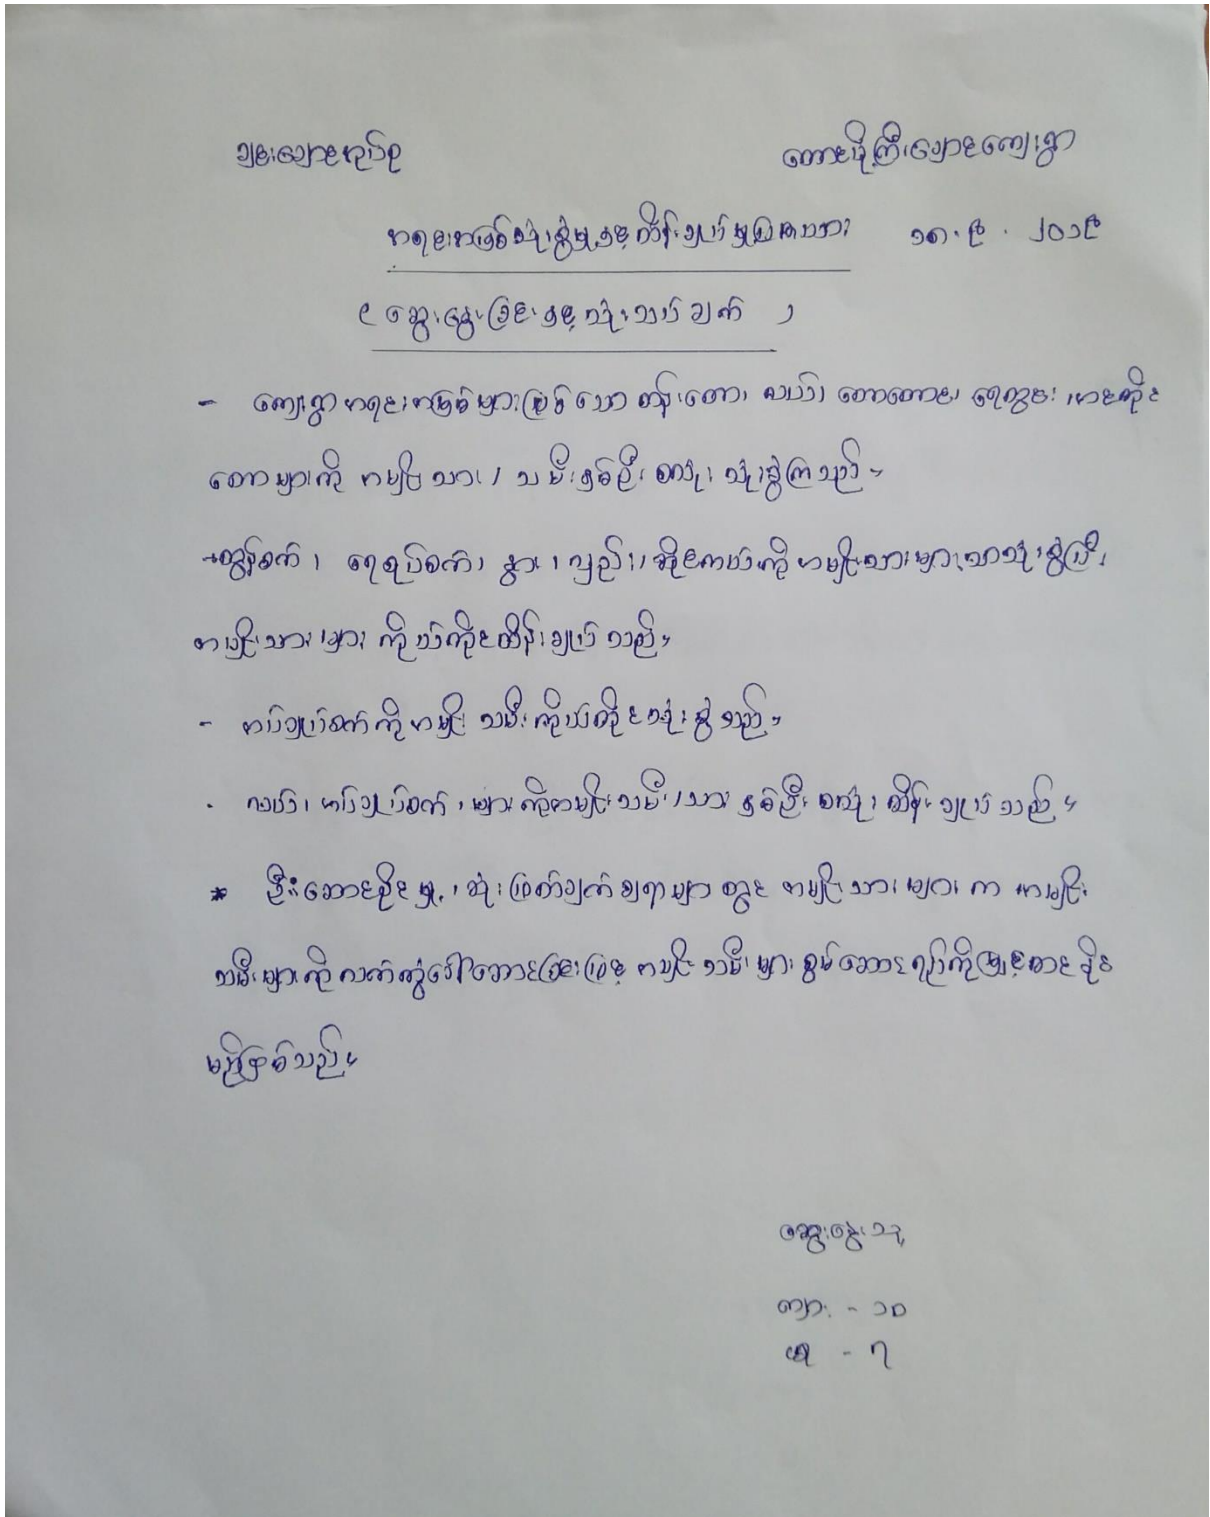 ချင်းချောင်းအုပ်စု
တောင်ဖိုကြီးချောင်ကျေးရွာ
အရင်းအမြစ်သုံးစွဲမှုနှင့်ထိန်းချုပ်မှုပြဇယား ၁၈.၉.၂၀၁၉
( ဆွေးနွေးခြင်းနှင့်သုံးသပ်ချက် )
- ကျေးရွာအရင်းအမြစ်များဖြစ်သော စိုန်းတော၊ လယ်၊ တောတောင်၊ ရေတွင်း၊ အင်တိုင်
တောများကို အမျိုးသား / သမီးနှစ်ဦးစလုံး သုံးစွဲကြသည်။
- ထွန်စက်၊ ရေစုပ်စက်၊ နွား၊ လှည်း၊ ဆိုင်ကယ်ကိုအမျိုးသားများသာသုံးစွဲပြီး
အမျိုးသားများကိုယ်တိုင်ထိန်းချုပ်သည်။
- အပ်ချုပ်စက်ကိုအမျိုးသမီးကိုယ်တိုင်သုံးစွဲသည်။
- လယ်၊ အပ်ချုပ်စက်၊ များကိုအမျိုးသမီး/သား နှစ်ဦးစလုံးထိန်းချုပ်သည်။
* ဦးဆောင်နိုင်မှု၊ ဆုံးဖြတ်ချက်ချရာများတွင် အမျိုးသားများက အမျိုး
သမီးများကိုလက်တွဲခေါ်ဆောင်ခြင်းဖြင့် အမျိုးသမီးများစွမ်းဆောင်ရည်ကိုမြှင့်တင်နိုင်
မည်ဖြစ်သည်။
ဆွေးနွေးသူ
ကျား - ၁၀
မ - ၇